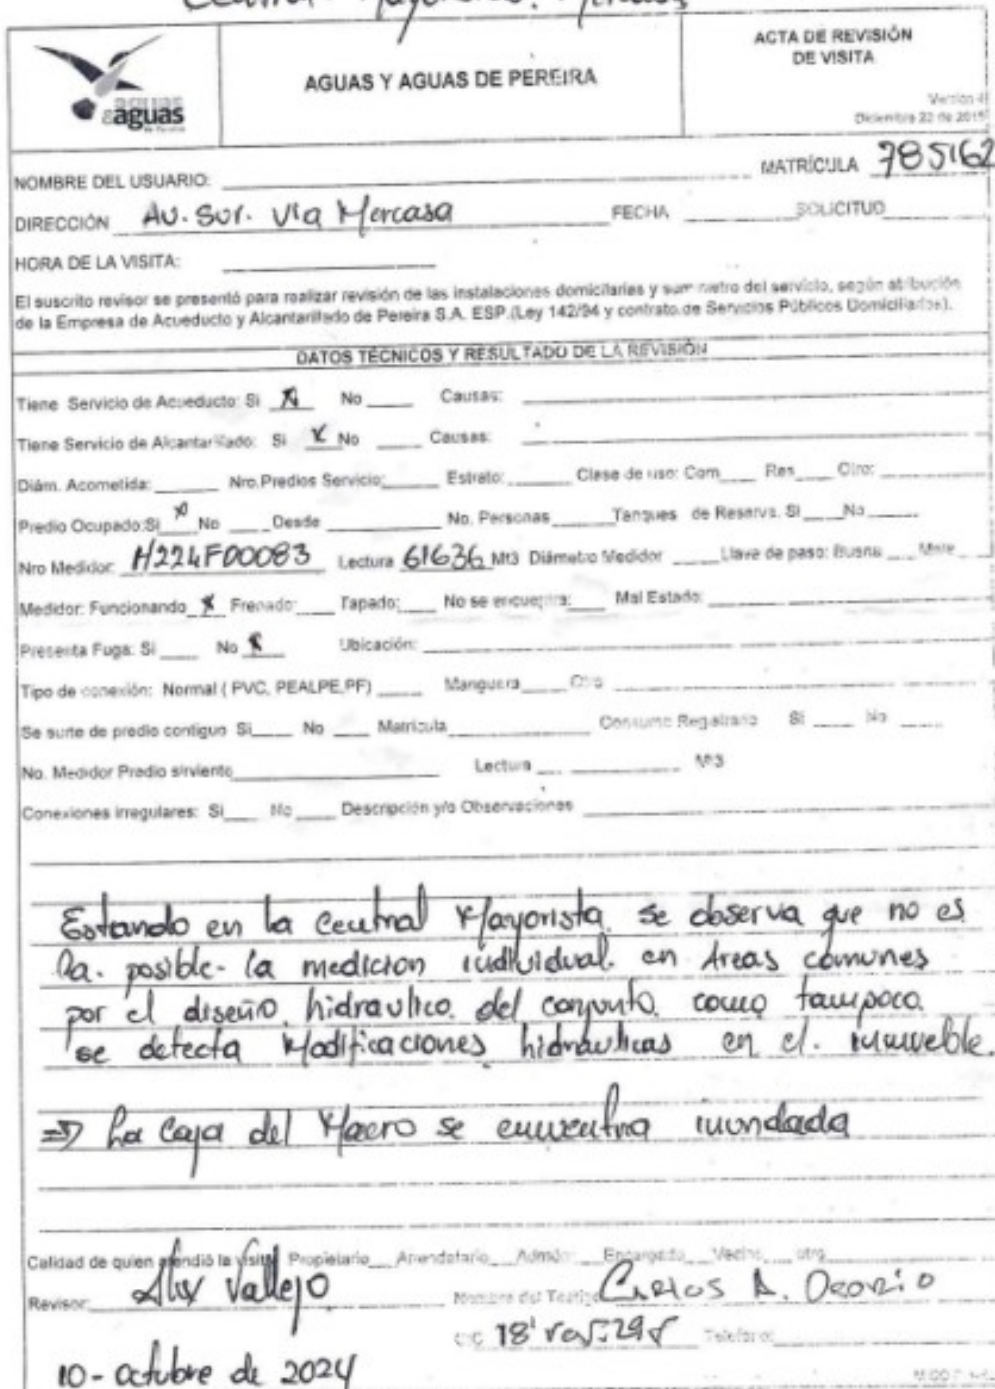 Central Mayorista.
ACTA DE REVISIÓN
DE VISITA
AGUAS Y AGUAS DE PEREIRA
aguas
&aguas
de Pereira
Versión 4
Diciembre 22 de 2015
MATRÍCULA 785162
NOMBRE DEL USUARIO:
DIRECCIÓN Av. Sur. Vía Mercasa FECHA SOLICITUD
HORA DE LA VISITA:
El suscrito revisor se presentó para realizar revisión de las instalaciones domiciliarias y suministro del servicio, según atribución
de la Empresa de Acueducto y Alcantarillado de Pereira S.A. ESP.(Ley 142/94 y contrato de Servicios Públicos Domiciliarios).
DATOS TÉCNICOS Y RESULTADO DE LA REVISIÓN
Tiene Servicio de Acueducto: Si X No Causas:
Tiene Servicio de Alcantarillado: Si X No Causas:
Diám. Acometida: Nro.Predios Servicio: Estrato: Clase de uso: Com Res Otro:
Predio Ocupado:Si X No Desde No. Personas Tanques de Reserva. Si No
Nro Medidor: H224F00083 Lectura 61636 Mt3 Diámetro Medidor Llave de paso: Buena Mala
Medidor: Funcionando X Frenado: Tapado: No se encuentra: Mal Estado:
Presenta Fuga: Si No X Ubicación:
Tipo de conexión: Normal ( PVC, PEALPE,PF) Manguera Otro
Se surte de predio contiguo Si No Matrícula Consumo Registrado Si No
No. Medidor Predio sirviente Lectura M3
Conexiones irregulares: Si No Descripción y/o Observaciones
Estando en la Central Mayorista, se observa que no es
posible la medicion individual en Areas comunes
por el diseño hidraulico del conjunto, como tampoco
se detecta Modificaciones hidraulicas en el inmueble.
=> La Caja del Macro se encuentra inundada
Calidad de quien atendió la visita: Propietario Arrendatario Admón: Encargado Vecino otro
Revisor: Alex Vallejo Nombre del Testigo Carlos A. Osorio
CC 18' Teléfono:
10-octubre de 2024